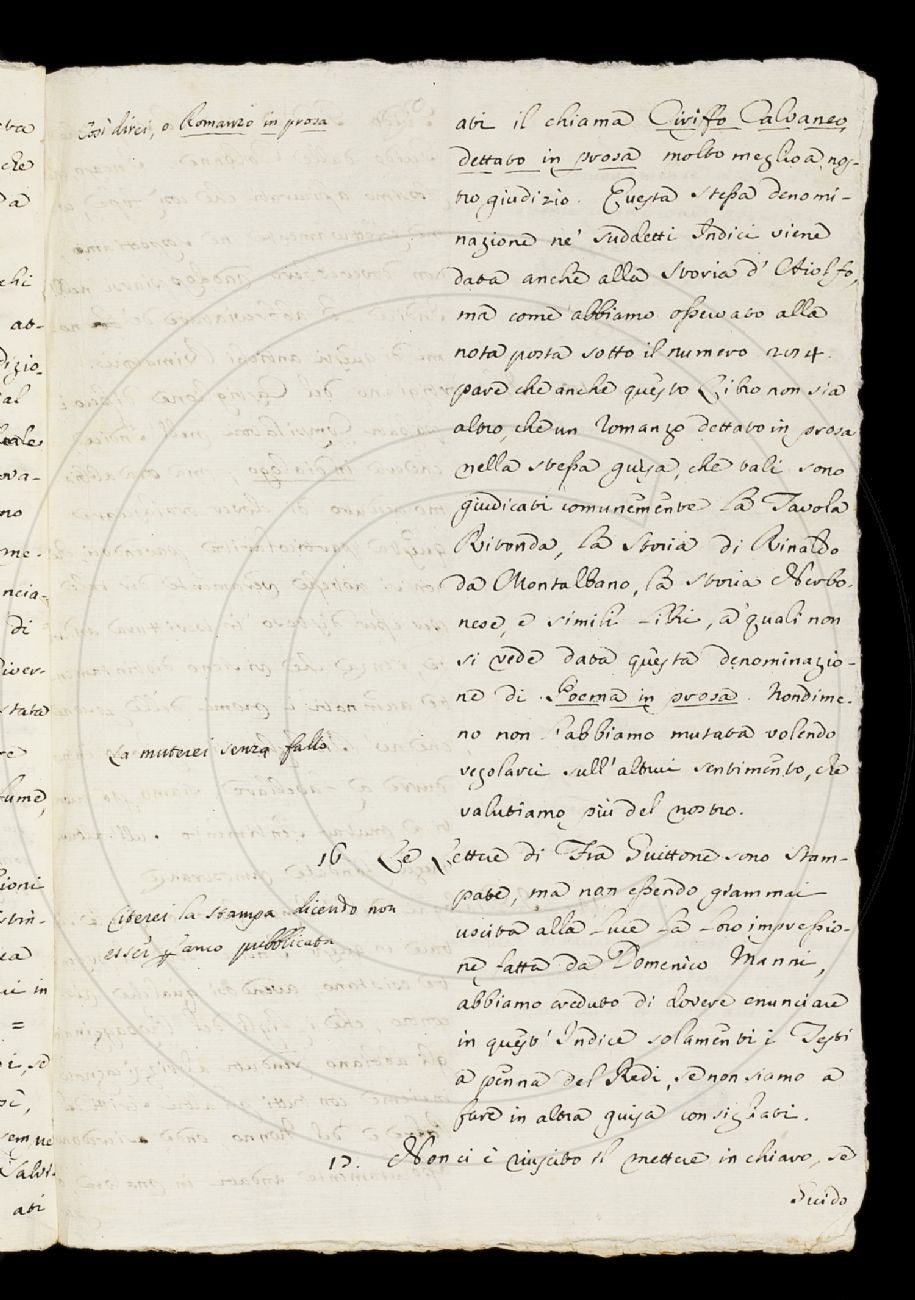 Così direi, o Romanzo in prosa
ati il chiama Ciriffo Calvaneo,
dettato in prosa molto meglio a nos-
tro giudizio. Questa stessa denomi-
nazione ne' suddetti Indici viene
data anche alla storia d' Aiolfo,
ma come abbiamo osservato alla
nota posta sotto il numero
pare che anche questo Libro non sia
altro, che un Romanzo dettato in prosa
nella stessa guisa, che tali sono
giudicati comunemente la Tavola
Ritonda, la storia di Rinaldo
da Montalbano, la storia Nerbo-
nese, e simili Libri, a' quali non
si vede data questa denominazio-
ne di Poema in prosa. Nondime-
no non l'abbiamo mutata volendo
regolarci sull'altrui sentimento, che
valutiamo più del nostro.
La muterei senza fallo
16 Le Lettere di Fra Guittone sono stam-
pate, ma non essendo giammai
uscita alla luce la loro impressio-
ne fatta da Domenico Manni,
abbiamo creduto di dovere enunciare
in quest' Indice solamente i Testi
a penna del Redi, se non siamo a
fare in altra guisa consigliati.
Citerei la stampa dicendo non
esser pubblicata
17. Non ci è riuscito il mettere in chiaro, se
Guido
ati